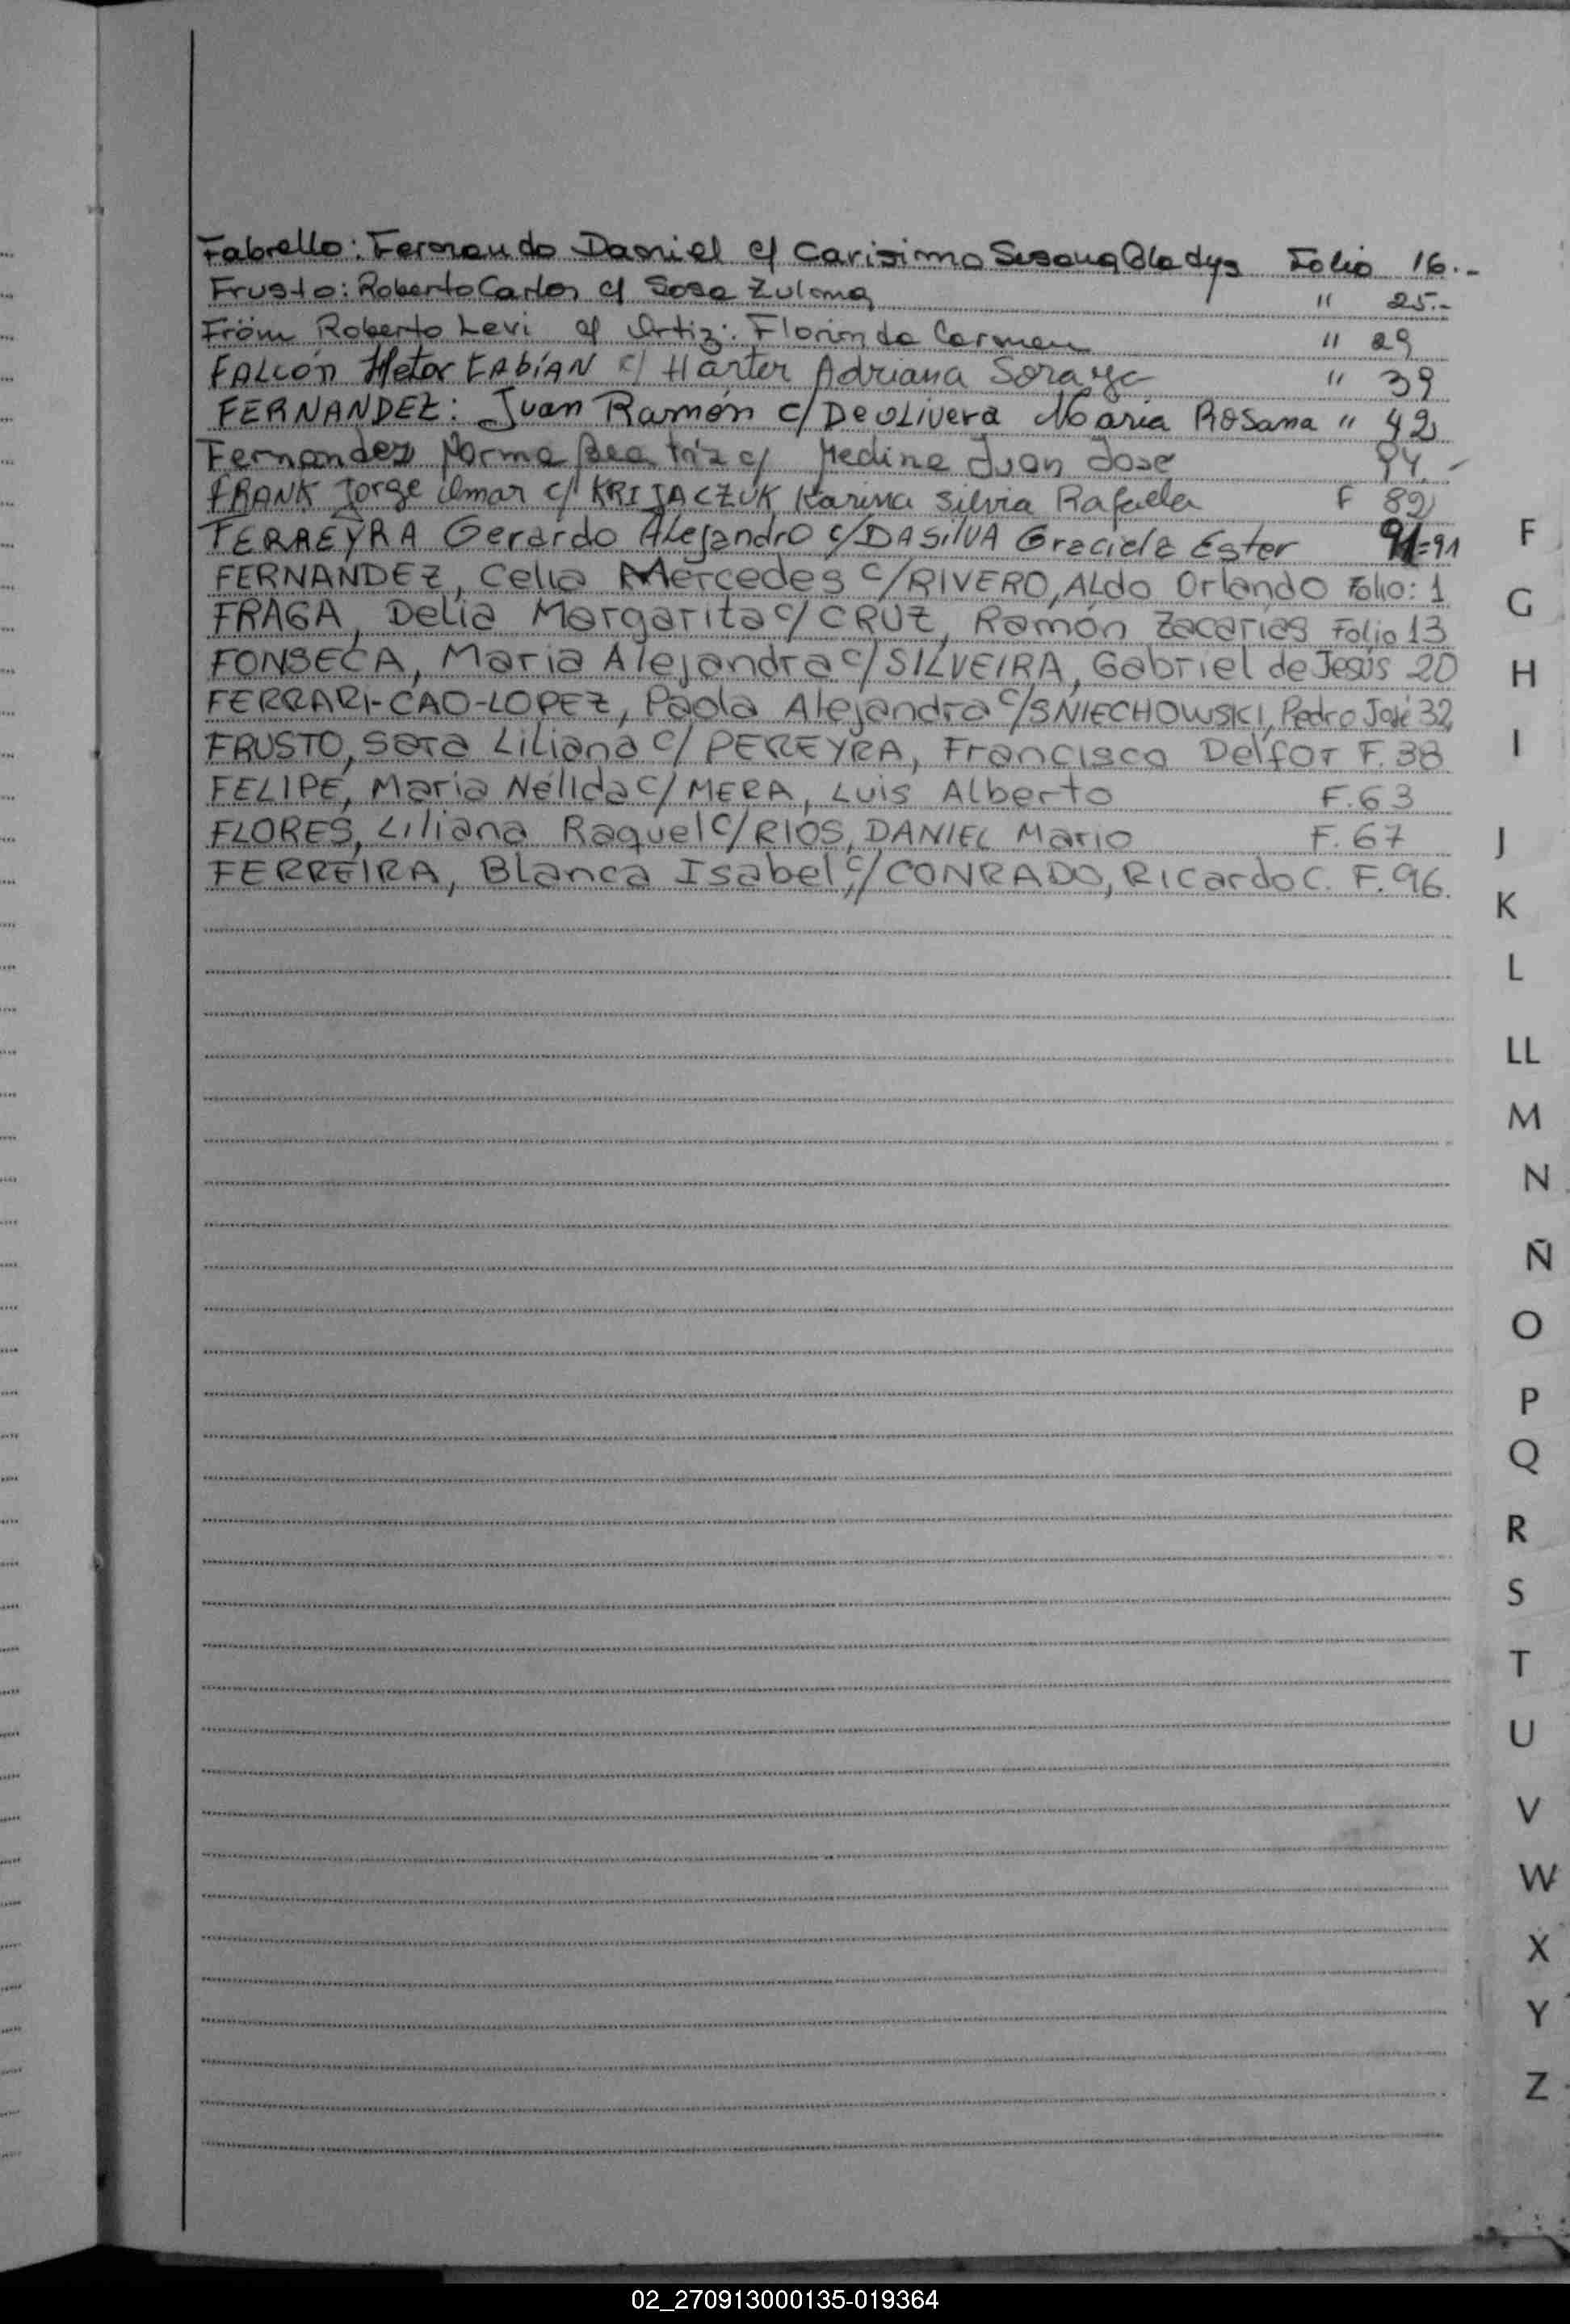 Fabrello: Fernando Daniel c/ Carisimo Susana Gladys Folio 16.-
Frusto: Roberto Carlos c/ Sosa Zulema " 25.-
Fröm Roberto Levi c/ Ortiz: Florinda Carmen " 29
FALCÓN Hetor FABÍAN c/ Härter Adriana Soraya " 39
FERNANDEZ: Juan Ramón c/ De OLivera María ROSana " 42
Fernandez Norma Beatriz c/ Medina Juan Jose 44.-
FRANK Jorge Omar c/ KRIJACZUK Karina Silvia Rafaela F 82
FERREYRA Gerardo Alejandro c/ DASilVA Graciela Ester 91=91
FERNANDEZ, Celia Mercedes c/ RIVERO, ALdo Orlando Folio: 1
FRAGA, Delia Margarita c/ CRUZ, Ramón Zacarías Folio 13
FONSECA, María Alejandra c/ SILVEIRA, Gabriel de Jesús 20
FERRARI-CAO-LOPEZ, Paola Alejandra c/ SNIECHOWSKI, Pedro José 32
FRUSTO, Sara Liliana c/ PEREYRA, Francisco Delfor F. 38
FELIPE, María Nélida c/ MERA, Luis Alberto F. 63
FLORES, Liliana Raquel c/ RIOS, DANIEL Mario F. 67
FERREIRA, Blanca Isabel c/ CONRADO, Ricardo C. F. 96.
F
G
H
I
J
K
L
LL
M
N
Ñ
O
P
Q
R
S
T
U
V
W
X
Y
Z
02_270913000135-019364